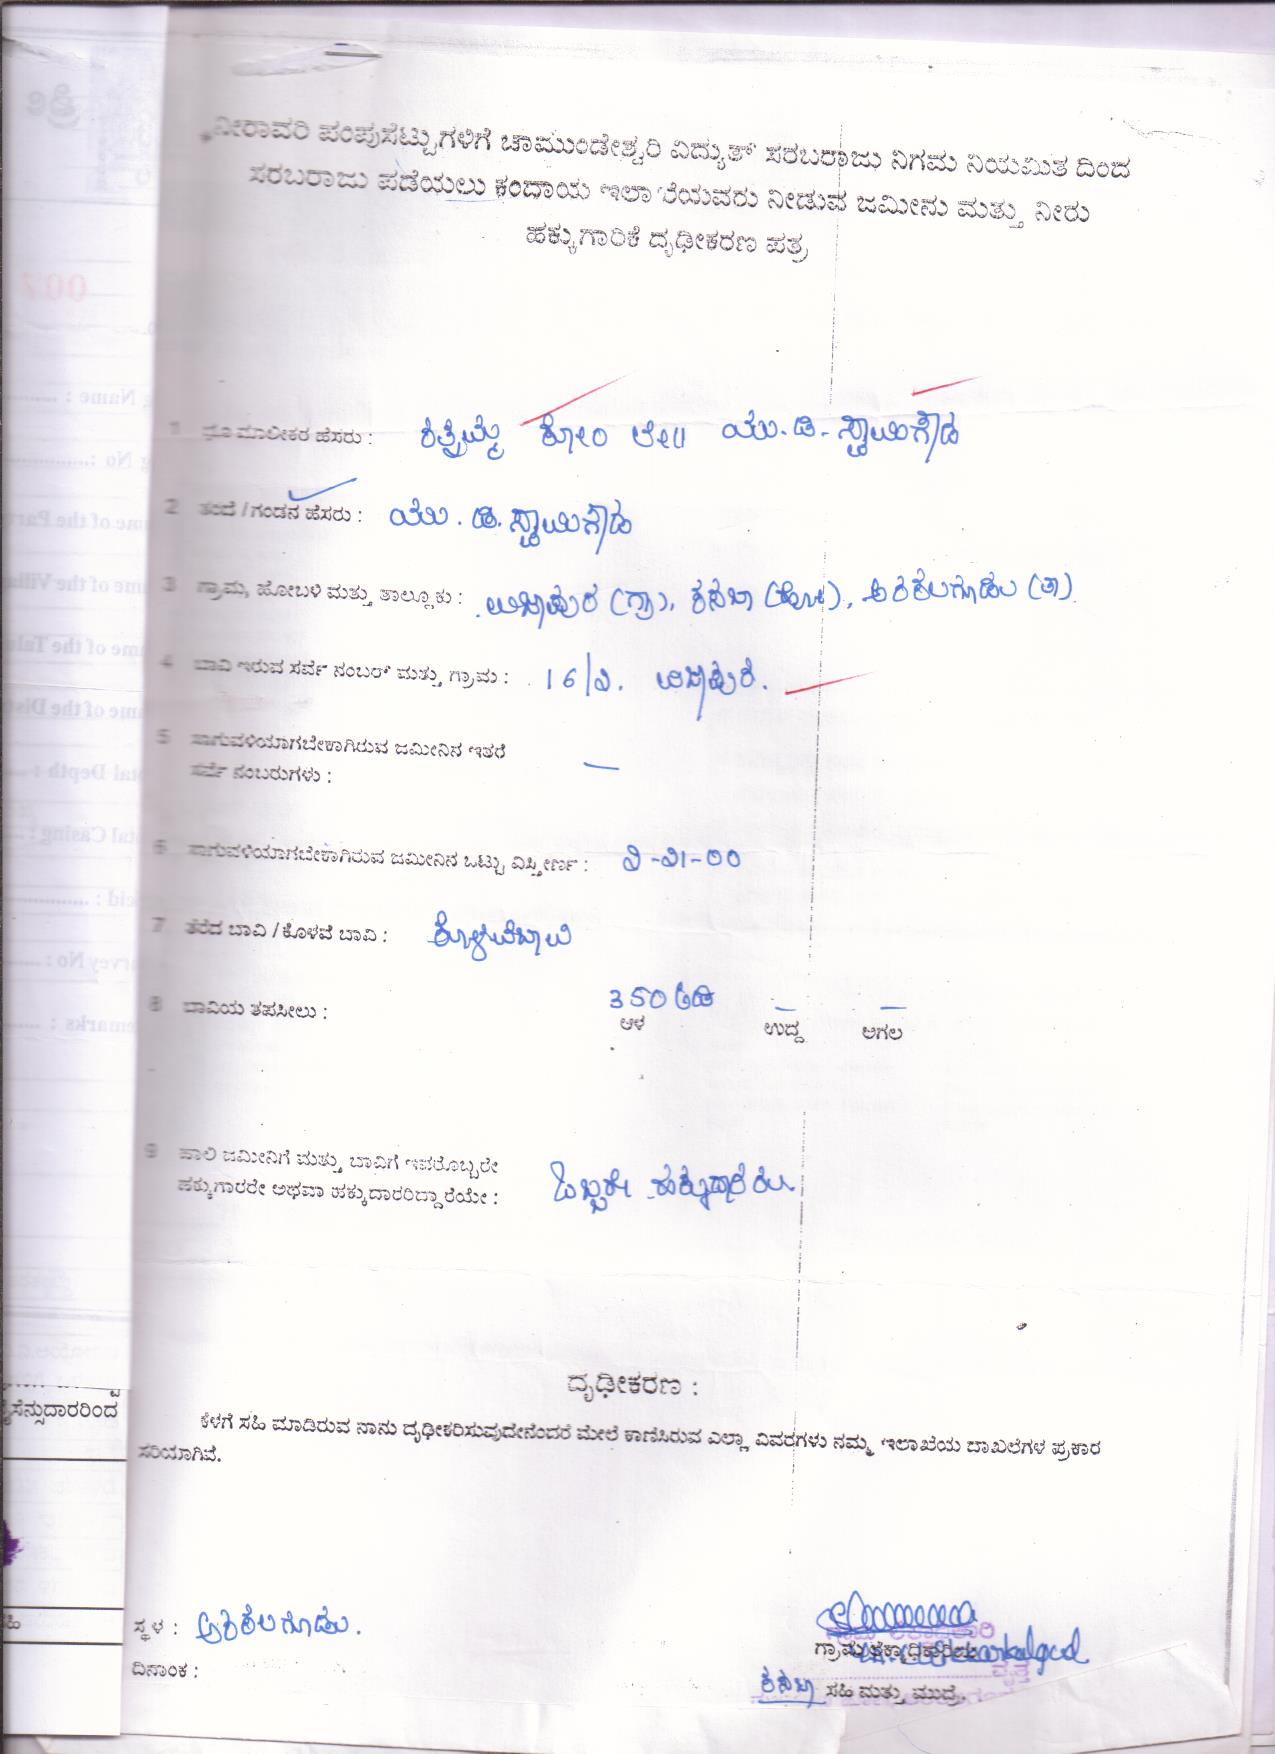 ನೀರಾವರಿ ಪಂಪುಸೆಟ್ಟುಗಳಿಗೆ ಚಾಮುಂಡೇಶ್ವರಿ ವಿದ್ಯುತ್ ಸರಬರಾಜು ನಿಗಮ ನಿಯಮಿತ ದಿಂದ
ಸರಬರಾಜು ಪಡೆಯಲು ಕಂದಾಯ ಇಲಾಖೆಯವರು ನೀಡುವ ಜಮೀನು ಮತ್ತು ನೀರು
ಹಕ್ಕುಗಾರಿಕೆ ದೃಢೀಕರಣ ಪತ್ರ
1 ಭೂಮಾಲೀಕರ ಹೆಸರು : ಕೋಂ ಲೇ॥ ಯು.ಡಿ. ಸ್ವಾಮಿಗೌಡ
2 ತಂದೆ / ಗಂಡನ ಹೆಸರು : ಯು.ಡಿ. ಸ್ವಾಮಿಗೌಡ
3 ಗ್ರಾಮ, ಹೋಬಳಿ ಮತ್ತು ತಾಲ್ಲೂಕು : (ಗ್ರಾ), ಕಸಬಾ (ಹೋ), ಅರಕಲಗೂಡು (ತಾ).
4 ಬಾವಿ ಇರುವ ಸರ್ವೆ ನಂಬರ್ ಮತ್ತು ಗ್ರಾಮ : 16/೨.
5 ಸಾಗುವಳಿಯಾಗಬೇಕಾಗಿರುವ ಜಮೀನಿನ ಇತರೆ
ಸರ್ವೆ ನಂಬರುಗಳು : —
6 ಸಾಗುವಳಿಯಾಗಬೇಕಾಗಿರುವ ಜಮೀನಿನ ಒಟ್ಟು ವಿಸ್ತೀರ್ಣ : ೨-೨೧-೦೦
7 ತೆರೆದ ಬಾವಿ / ಕೊಳವೆ ಬಾವಿ : ಕೊಳವೆಬಾವಿ
8 ಬಾವಿಯ ತಪಸೀಲು : 350 ಅಡಿ — —
ಆಳ ಉದ್ದ ಅಗಲ
9 ಹಾಲಿ ಜಮೀನಿಗೆ ಮತ್ತು ಬಾವಿಗೆ ಇವರೊಬ್ಬರೇ
ಹಕ್ಕುಗಾರರೇ ಅಥವಾ ಹಕ್ಕುದಾರರಿದ್ದಾರೆಯೇ : ಒಬ್ಬರೇ ಹಕ್ಕುದಾರರು.
ದೃಢೀಕರಣ :
ಕೆಳಗೆ ಸಹಿ ಮಾಡಿರುವ ನಾನು ದೃಢೀಕರಿಸುವುದೇನೆಂದರೆ ಮೇಲೆ ಕಾಣಿಸಿರುವ ಎಲ್ಲಾ ವಿವರಗಳು ನಮ್ಮ ಇಲಾಖೆಯ ದಾಖಲೆಗಳ ಪ್ರಕಾರ
ಸರಿಯಾಗಿವೆ.
ಸ್ಥಳ : ಅರಕಲಗೂಡು.
ದಿನಾಂಕ :
ಕಸಬಾ ವೃತ್ತ
ಸಹಿ ಮತ್ತು ಮುದ್ರೆ.